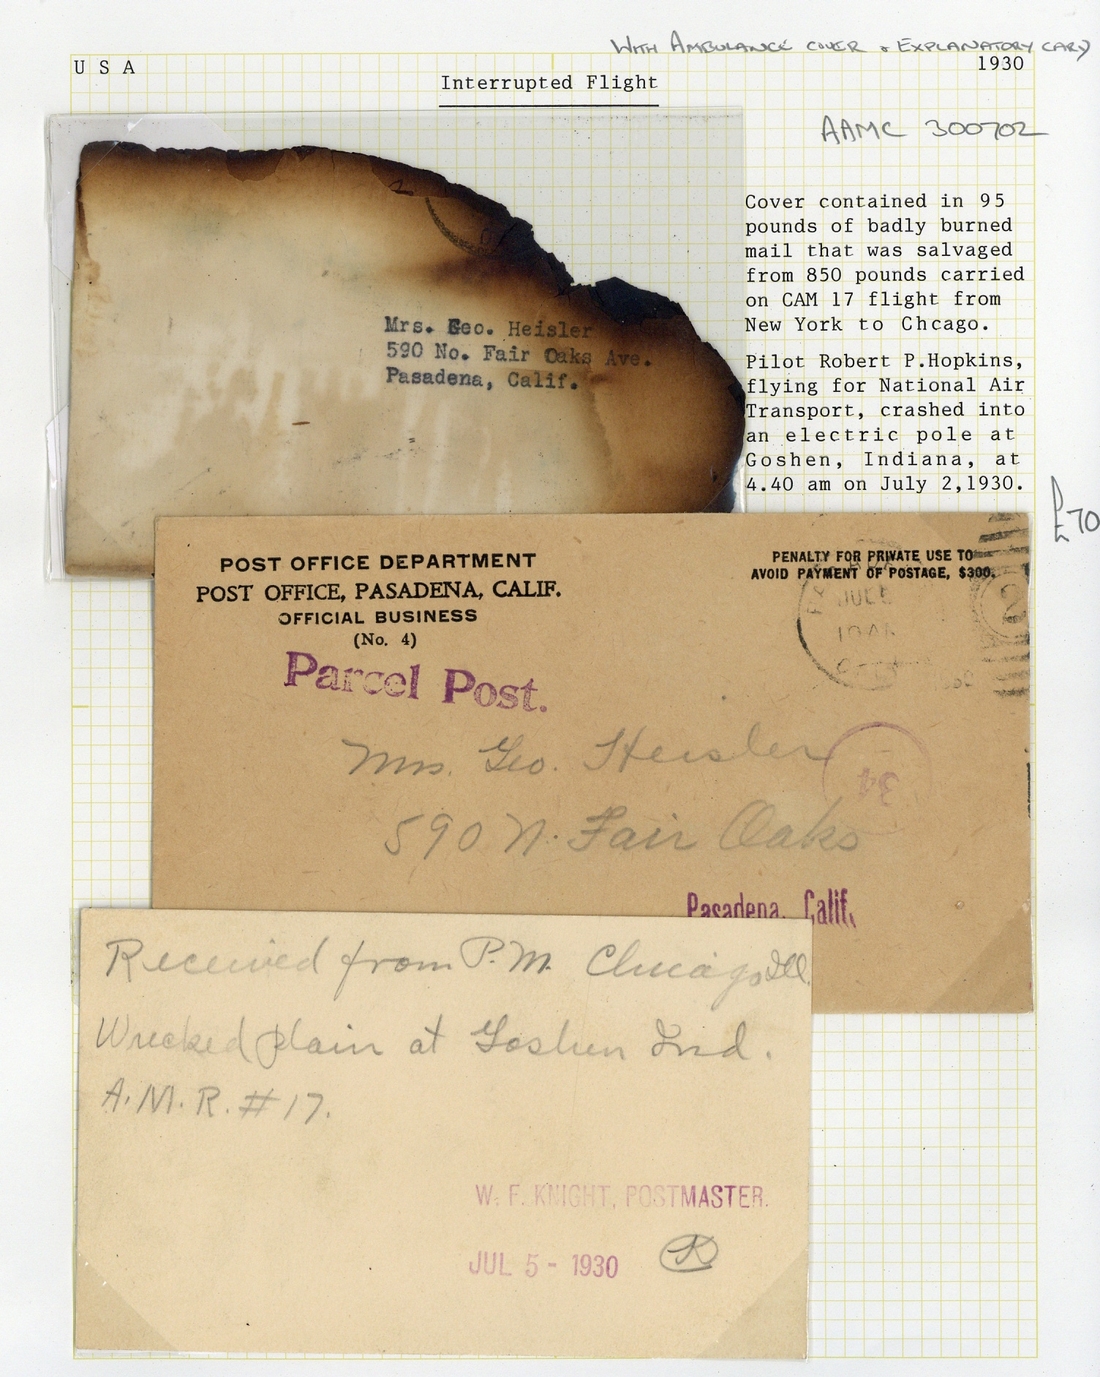 With Ambulance cover & Explanatory card
USA
1930
Interrupted Flight
AAMC 300702
Cover contained in 95
pounds of badly burned
mail that was salvaged
from 850 pounds carried
on CAM 17 flight from
New York to Chcago.
Pilot Robert P.Hopkins,
flying for National Air
Transport, crashed into
an electric pole at
Goshen, Indiana, at
4.40 am on July 2,1930.
£70
Mrs. Geo. Heisler
590 No. Fair Oaks Ave.
Pasadena, Calif.
POST OFFICE DEPARTMENT
POST OFFICE, PASADENA, CALIF.
OFFICIAL BUSINESS
(No. 4)
PENALTY FOR PRIVATE USE TO
AVOID PAYMENT OF POSTAGE, $300.
JUL 5
10 AM
2
Parcel Post.
Mrs. Geo. Heisler
34
590 N. Fair Oaks
Pasadena, Calif.
Received from P.M. Chicago Ill.
Wrecked plain at Goshen Ind.
A.M.R. #17.
W. F. KNIGHT, POSTMASTER.
JUL 5 - 1930
K